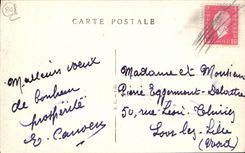 CARTE POSTALE
Meilleurs voeux
de bonheur
prospérité
Madame et Monsieur
Pierre Eggermont-Delattre
50, rue Léon
Loos lez Lille
(Nord)